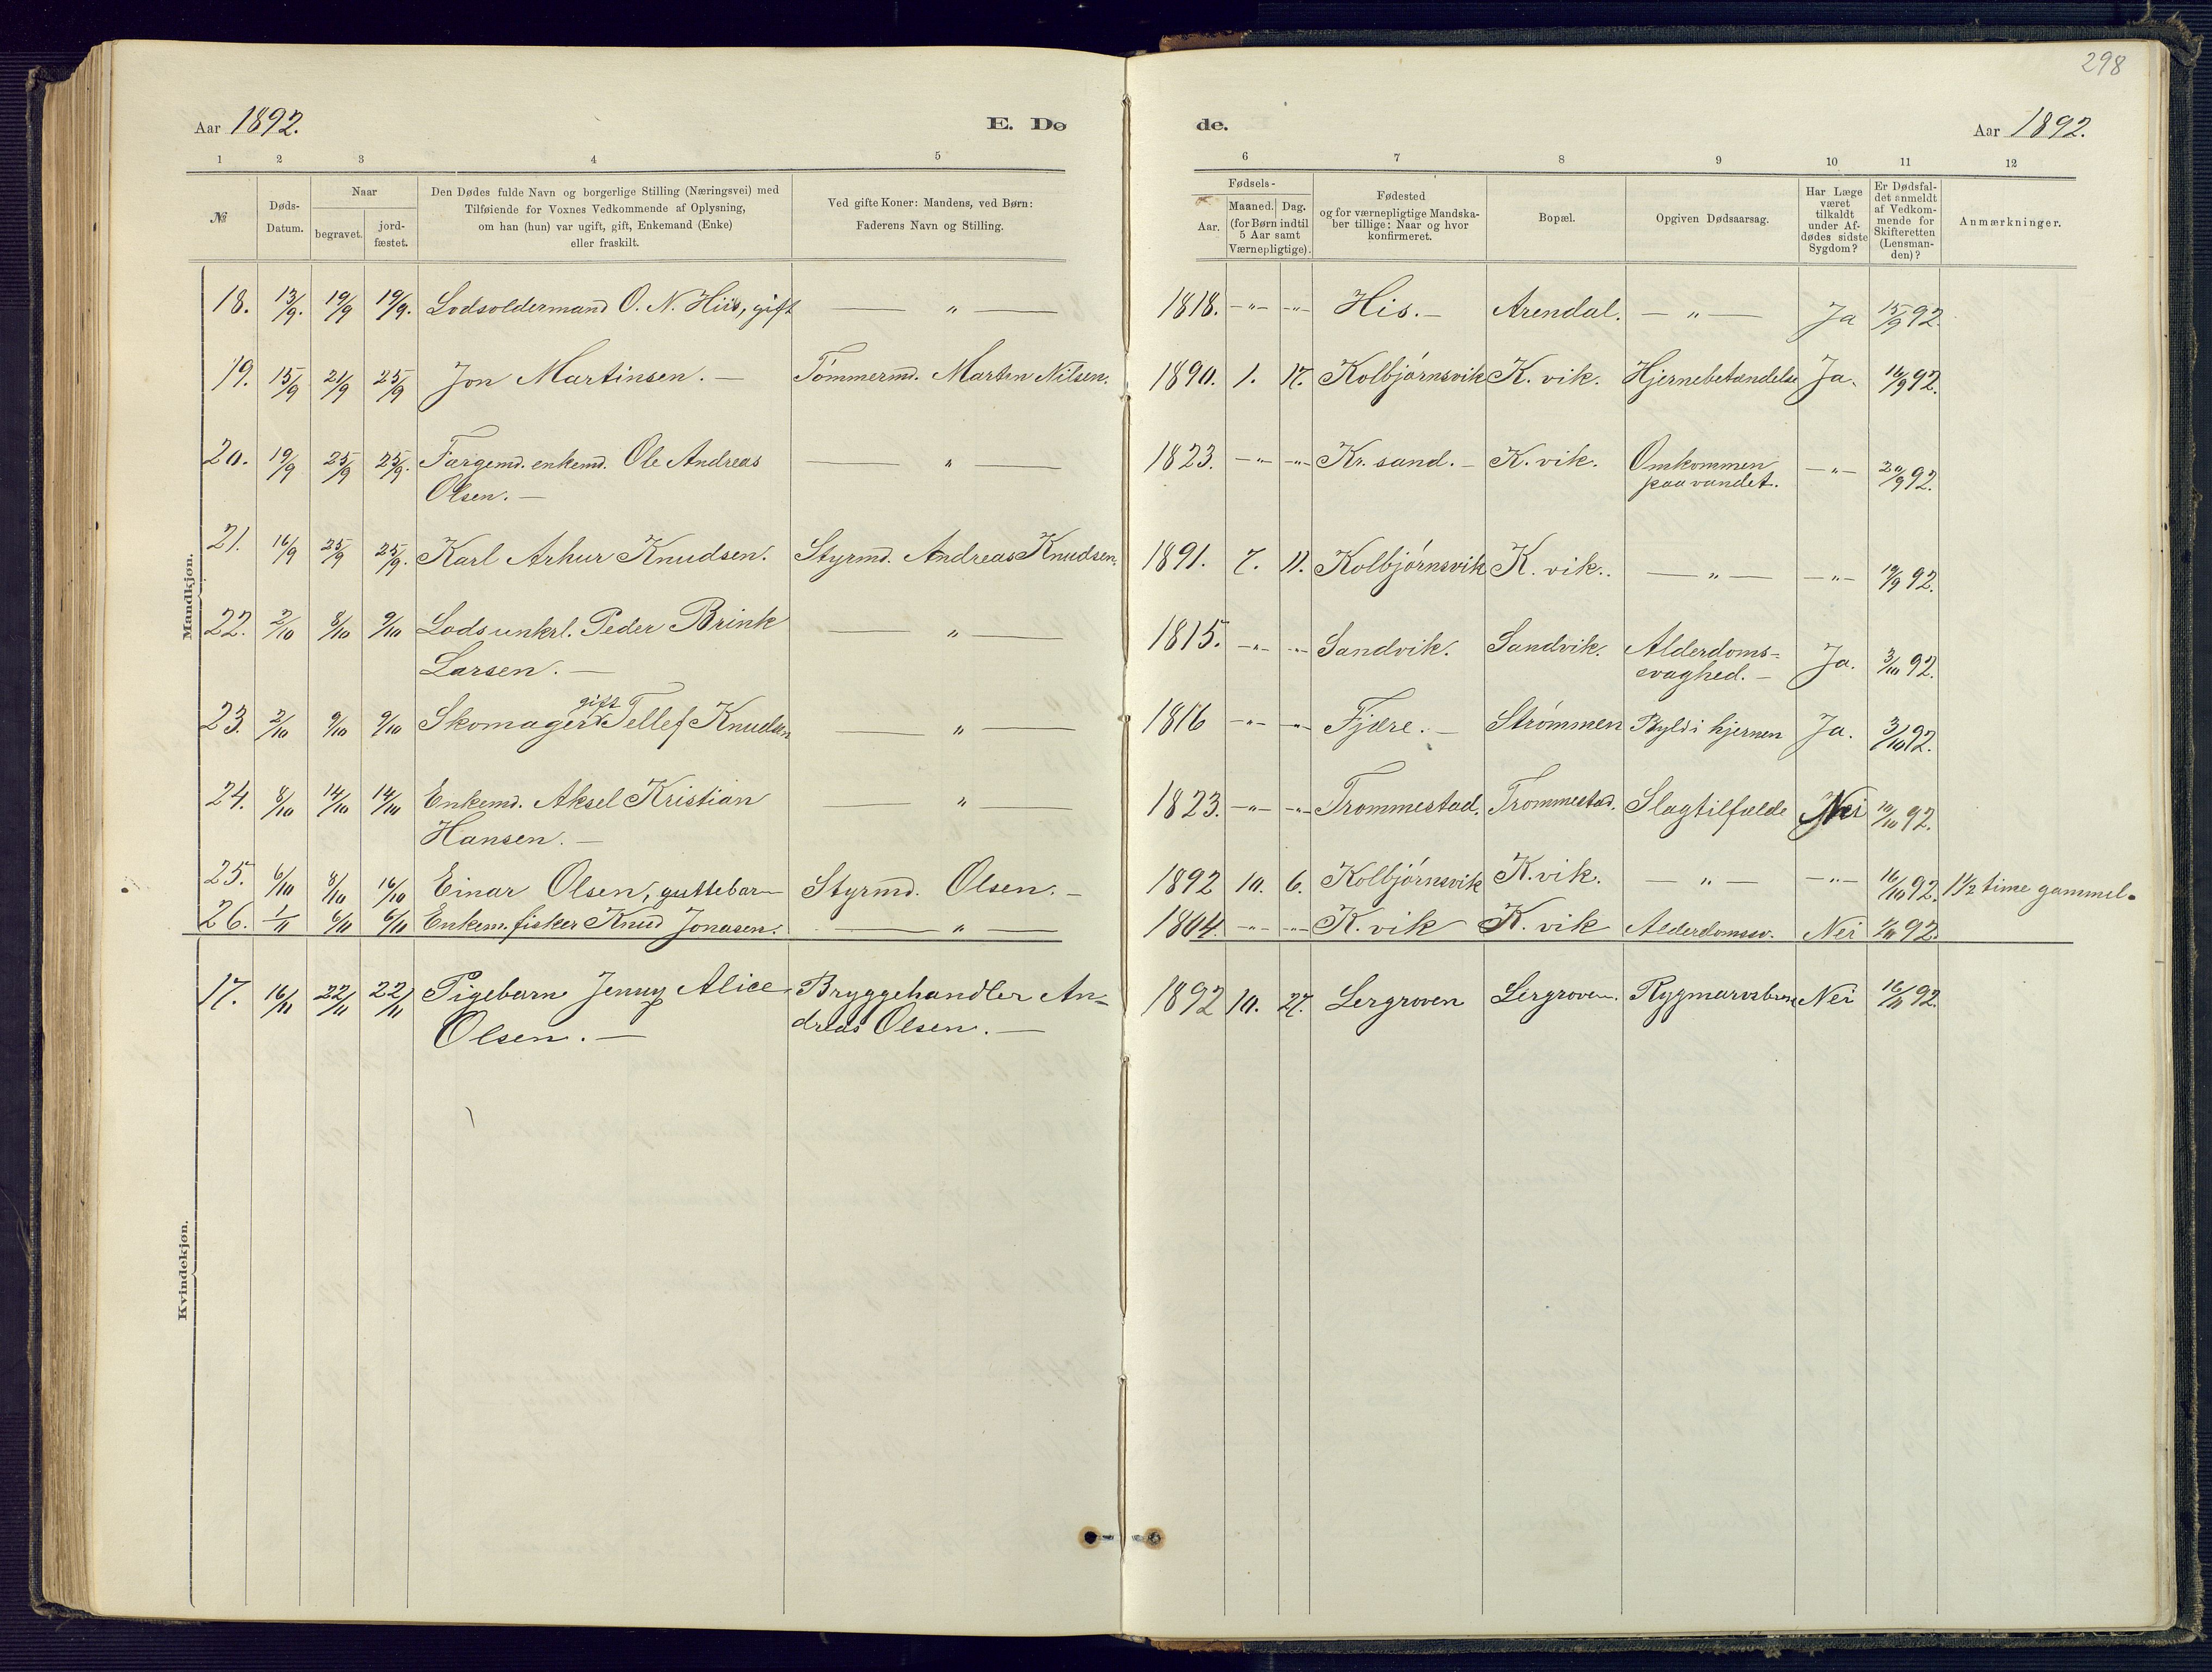 298
Aar 1892. E. Dø de. Aar 1892.
1 2 3 4 5 6 7 8 9 10 11 12
№
Døds-
Datum.
Naar
begravet.
jord-
fæstet.
Den Dødes fulde Navn og borgerlige Stilling (Næringsvei) med
Tilføiende for Voxnes Vedkommende af Oplysning,
om han (hun) var ugift, gift, Enkemand (Enke)
eller fraskilt.
Ved gifte Koner: Mandens, ved Børn:
Faderens Navn og Stilling.
Fødsels-
Aar.
Maaned. Dag.
(for Børn indtil
5 Aar samt
Værnepligtige).
Fødested
og for værnepligtige Mandska-
ber tillige: Naar og hvor
konfirmeret.
Bopæl.
Opgiven Dødsaarsag.
Har Læge
været
tilkaldt
under Af-
dødes sidste
Sygdom?
Er Dødsfal-
det anmeldt
af Vedkom-
mende for
Skifteretten
(Lensman-
den)?
Anmærkninger.
Mandkjøn.
18. 13/9. 19/9 19/9. Lodsoldermand O. N. Hiis, gift — " — 1818. -"- -"- His. – Arendal. — " — Ja 15/9 92.
19. 15/9 21/9 25/9 Jon Martinsen. – Tømmermd. Marten Nilsen. 1890. 1. 17. Kolbjørnsvik K. vik. Hjernebetændelse Ja. 16/9 92.
20. 19/9 25/9 25/9. Fargemd. enkemd. Ole Andreas — " — 1823. -"- -"- Kr. sand. – K. vik. Omkommen -"- 20/9 92.
Olsen. – paa vandet.
21. 16/9 25/9 25/9. Karl Arhur Knudsen. Styrmd. Andreas Knudsen. 1891. 7. 11. Kolbjørnsvik K. vik. — " — -"- 19/9 92.
22. 2/10 8/10 9/10 Lods unkrl. Peder Brink — " — 1815. -"- -"- Sandvik. Sandvik. Alderdoms= Ja. 3/10 92.
Larsen. – svaghed. –
gift
23. 2/10 9/10 9/10 Skomager Tellef Knudsen — " — 1816 -"- -"- Fjære. – Strømmen Byld i hjernen Ja. 3/10 92.
24. 8/10 14/10 14/10 Enkemd. Aksel Kristian — " — 1823. -"- -"- Trommestad. Trommestad. Slagtilfælde Nei 10/10 92.
Hansen. –
25. 6/10 8/10 16/10 Einar Olsen, guttebarn Styrmd. Olsen. – 1892 10. 6. Kolbjørnsvik K. vik. — " — -"- 16/10 92. 1 1/2 time gammel.
26. 1/11 6/11 6/11 Enkem. fisker Knud Jonasen. — " — 1804. -"- -"- K. vik K. vik Alderdomssv. Nei 92.
Kvindekjøn.
17. 16/11 22/11 22/11 Pigebarn Jenny Alice Bryggehandler An- 1892 10. 27. Lergroven Lergroven. Nei 16/11 92.
Olsen. – dreas Olsen. –